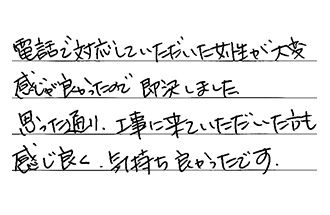 電話で対応していただいた女性が大変
感じが良かったので 即決しました
思った通り、工事に来ていただいた方も
感じ良く、気持ち良かったです.